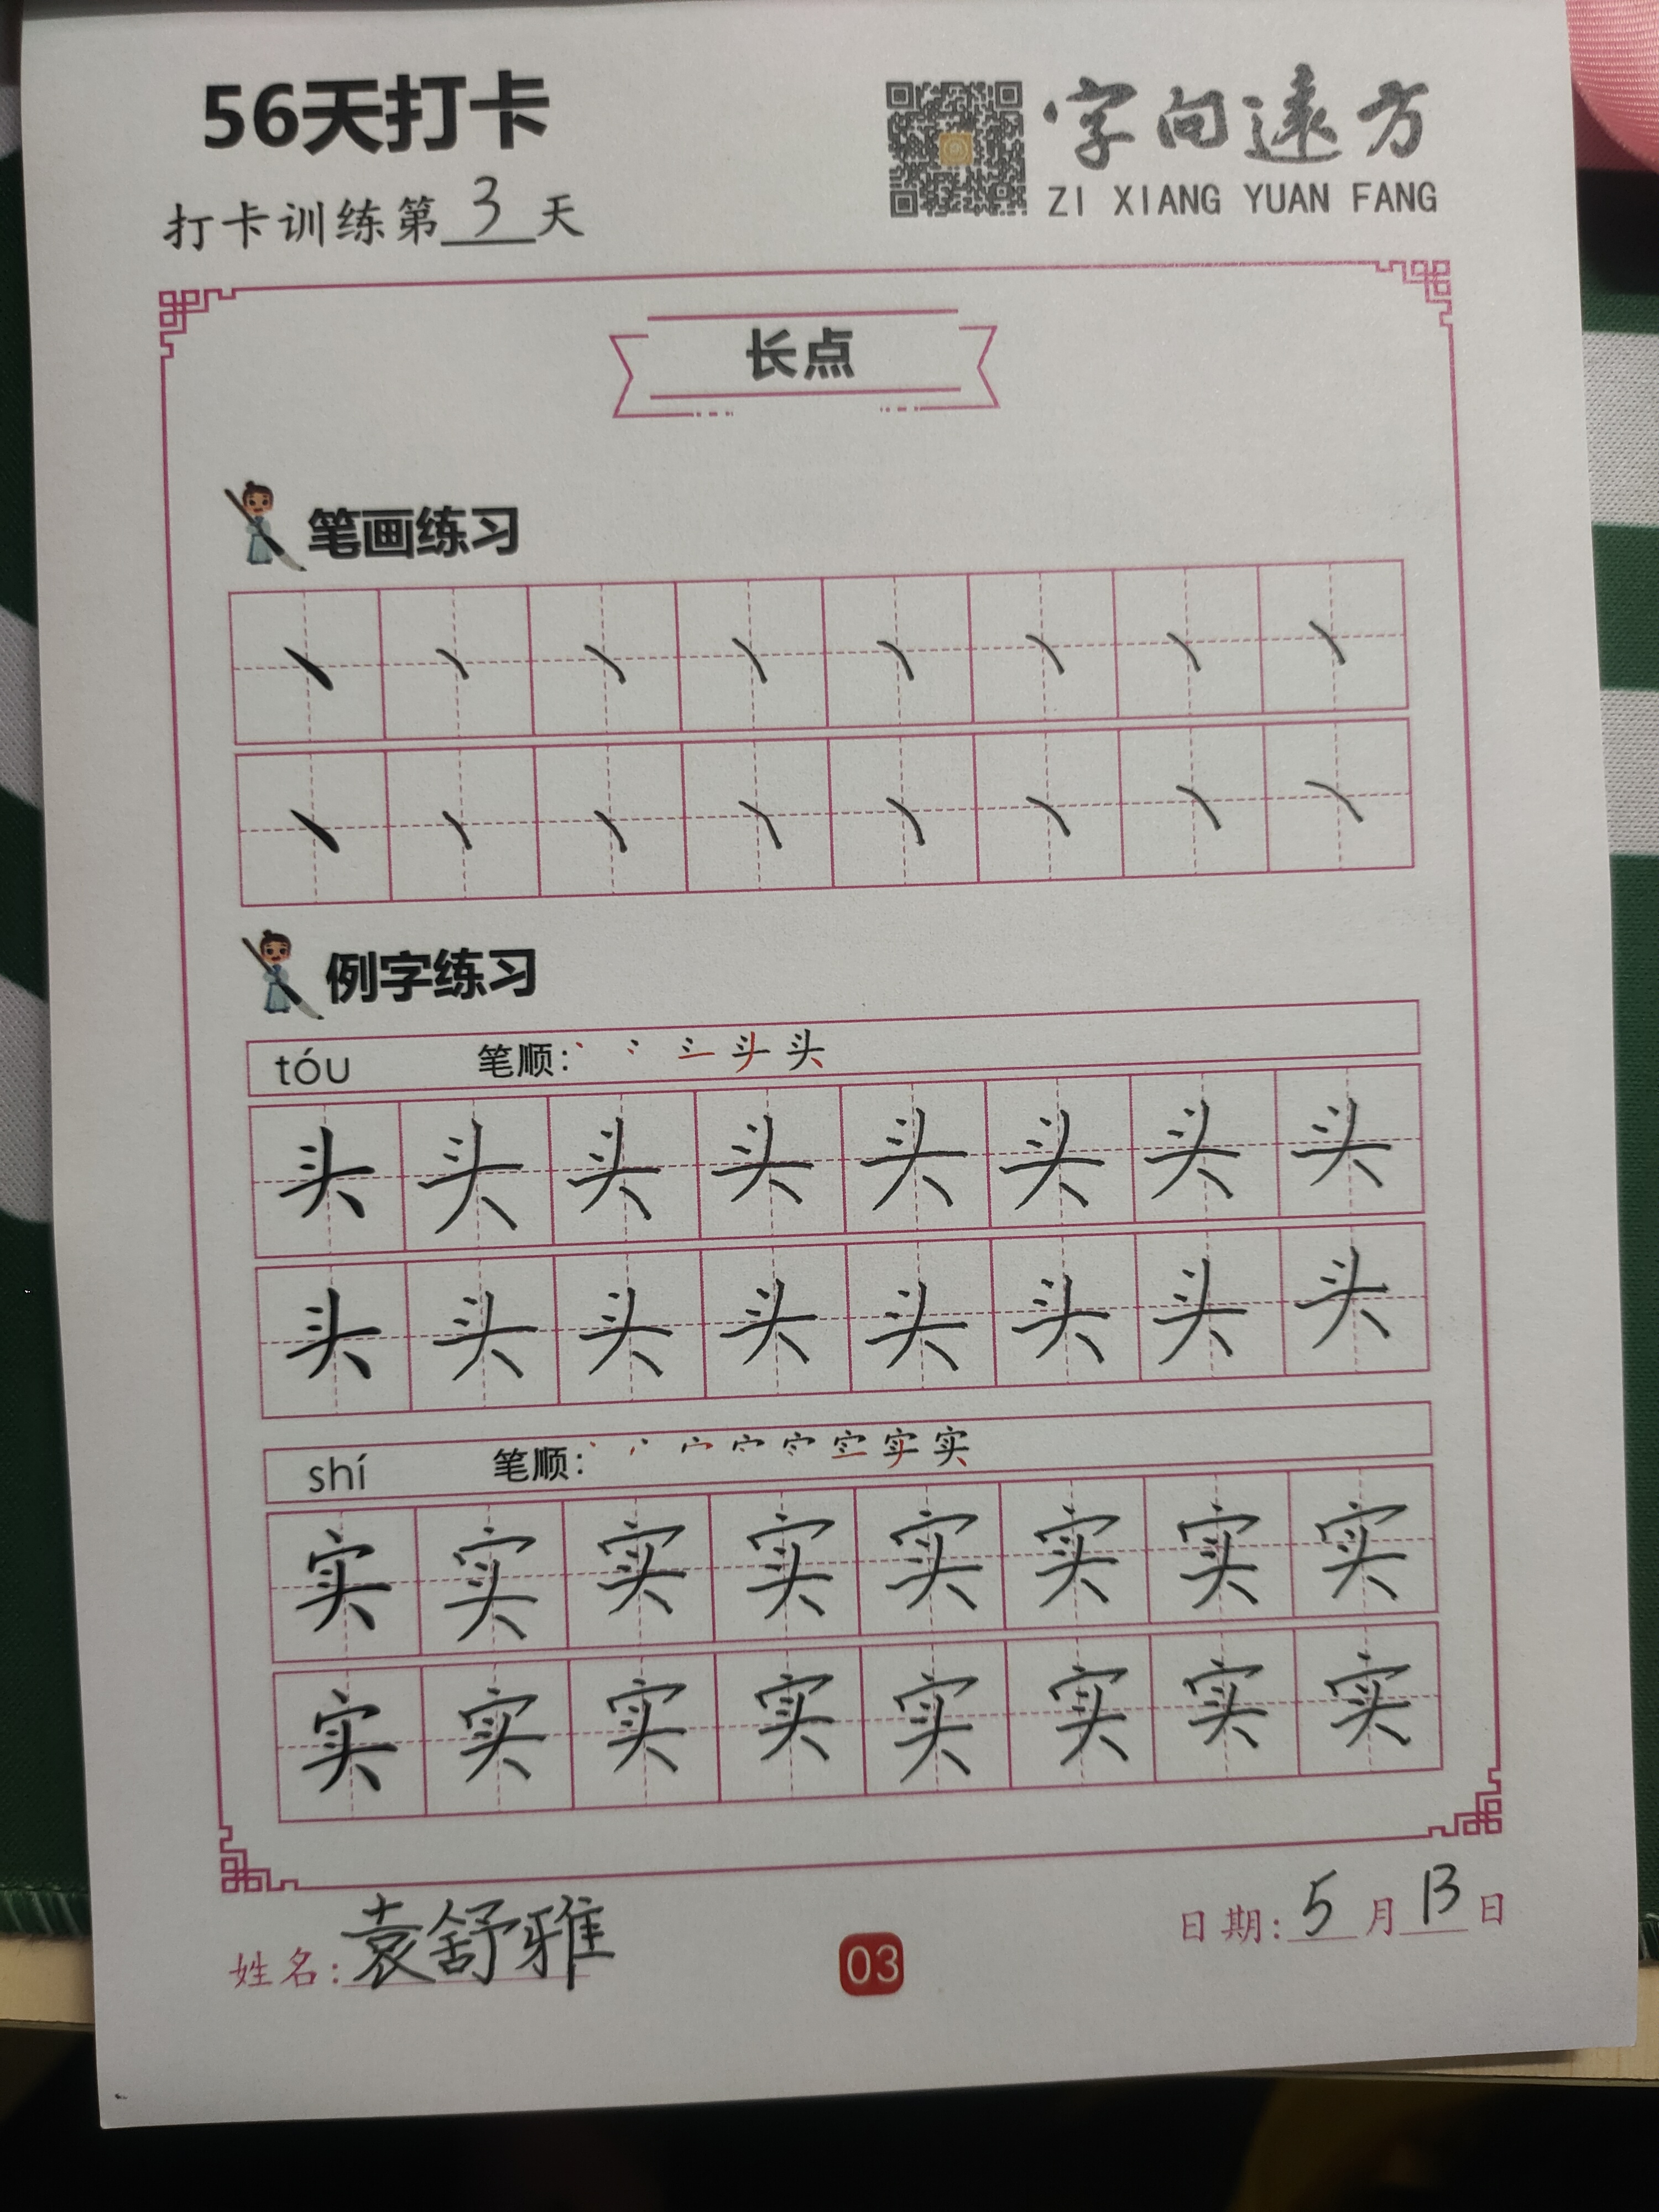 56天打卡
字向远方
ZI XIANG YUAN FANG
打卡训练第3天
长点
笔画练习
丶丶丶丶丶丶丶丶
丶丶丶丶丶丶丶丶
例字练习
tóu 笔顺: 头
头头头头头头头头
头头头头头头头头
shí 笔顺: 实
实实实实实实实实
实实实实实实实实
姓名:袁舒雅
03
日期:5月13日